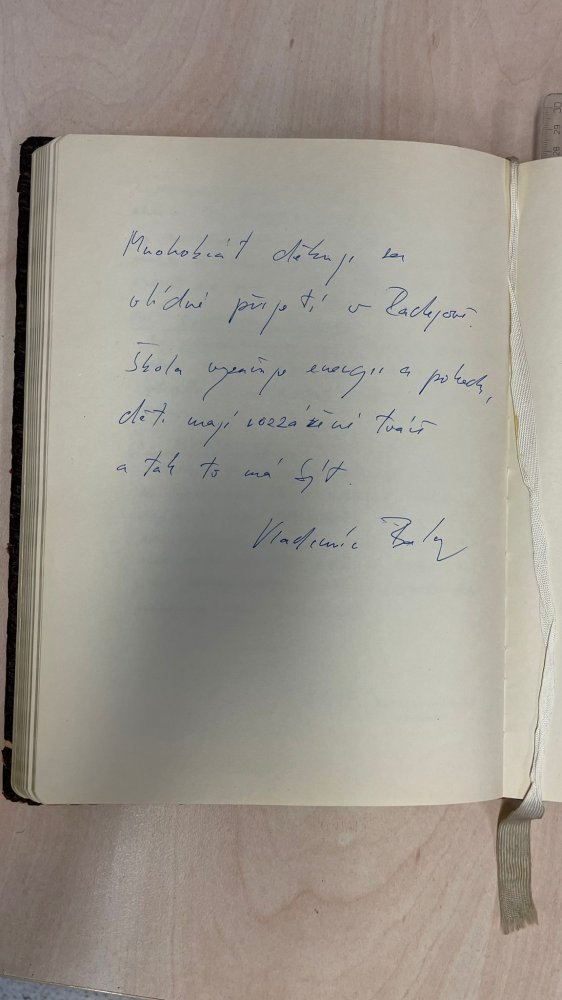 Mnohokrát děkuji za
vlídné přijetí v Radějově.
Škola vyzařuje energii a pohodu,
děti mají rozzářené tváře
a tak to má být.
Vladimír
30
29
28